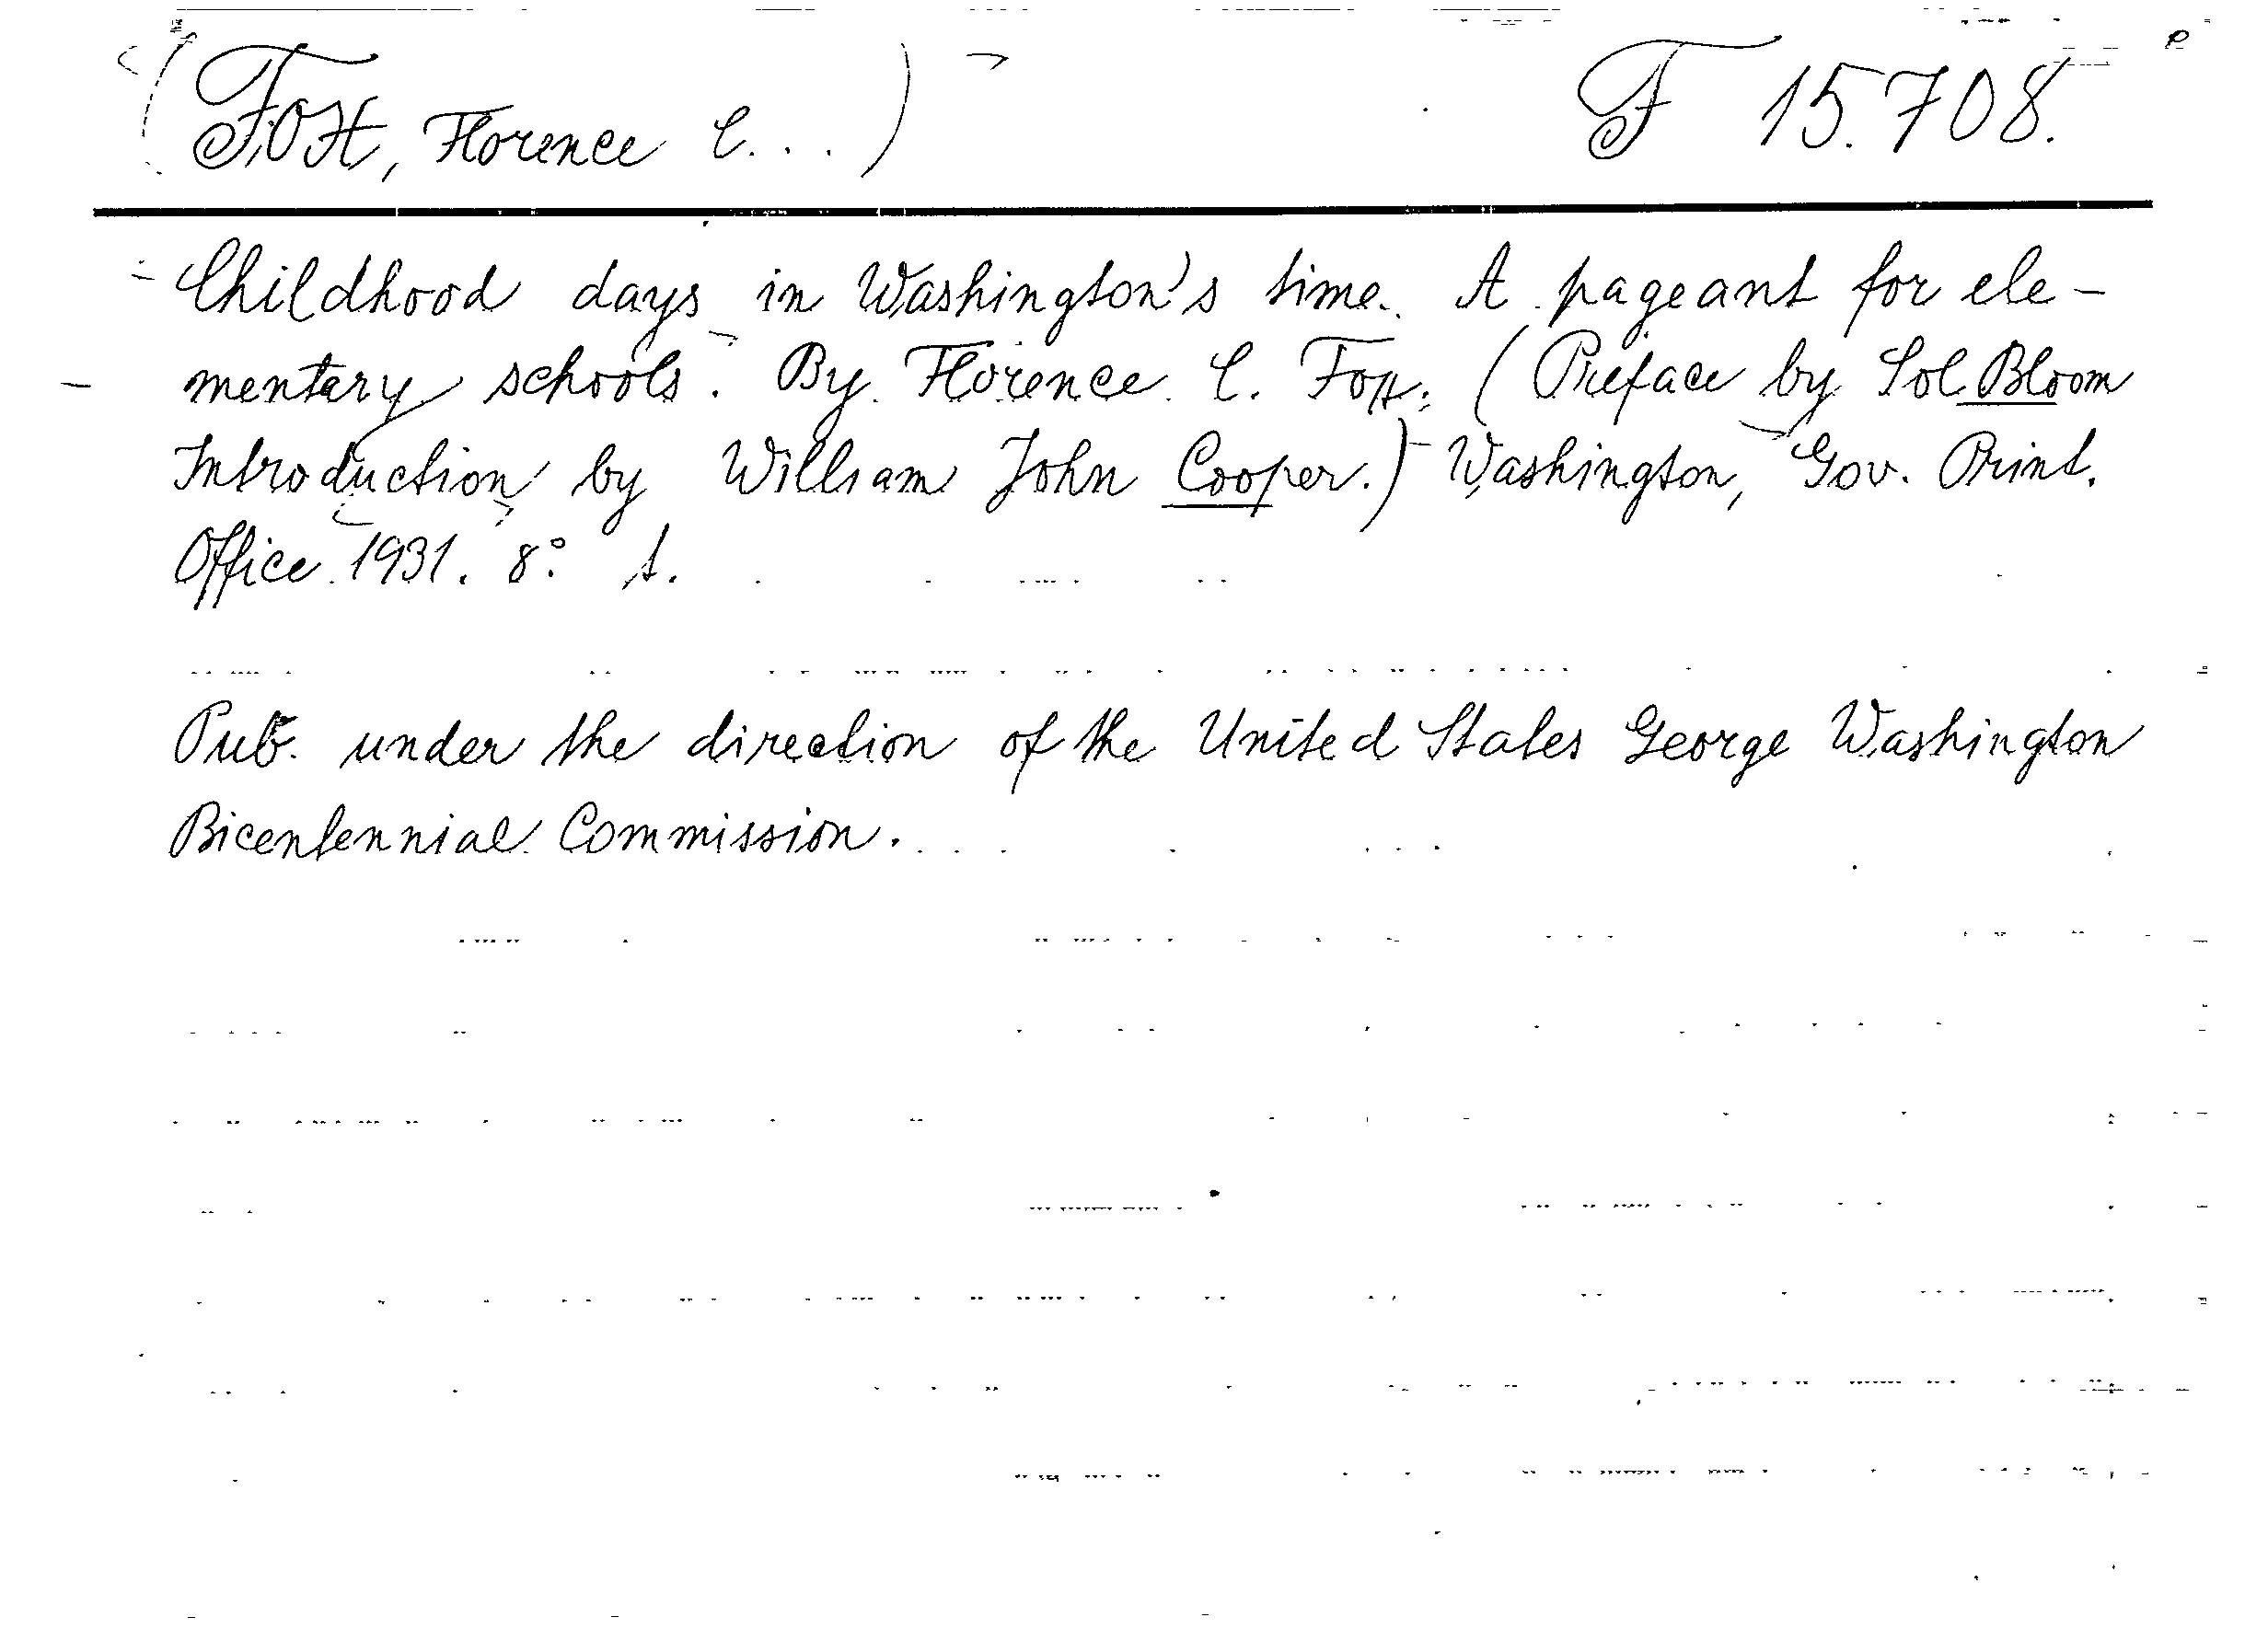 (Fox, Florence C...) F 15.708.
Childhood days in Washington's time. A pageant for ele-
mentary schools. By Florence C. Fox. (Preface by Sol Bloom
Introduction by William John Cooper.) Washington, Gov. Print.
Office 1931. 8° 1.
Pub. under the direction of the United States George Washington
Bicentennial Commission.